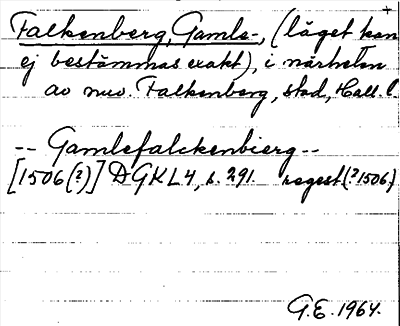 +
Falkenberg, Gamle-, (läget kan
ej bestämmas exakt), i närheten
av nuv. Falkenberg, stad, Hall. l.
-- Gamlefalckenbierg --
[1506(?)] DGKL4, s. 291. regest (?1506)
G.E. 1964.